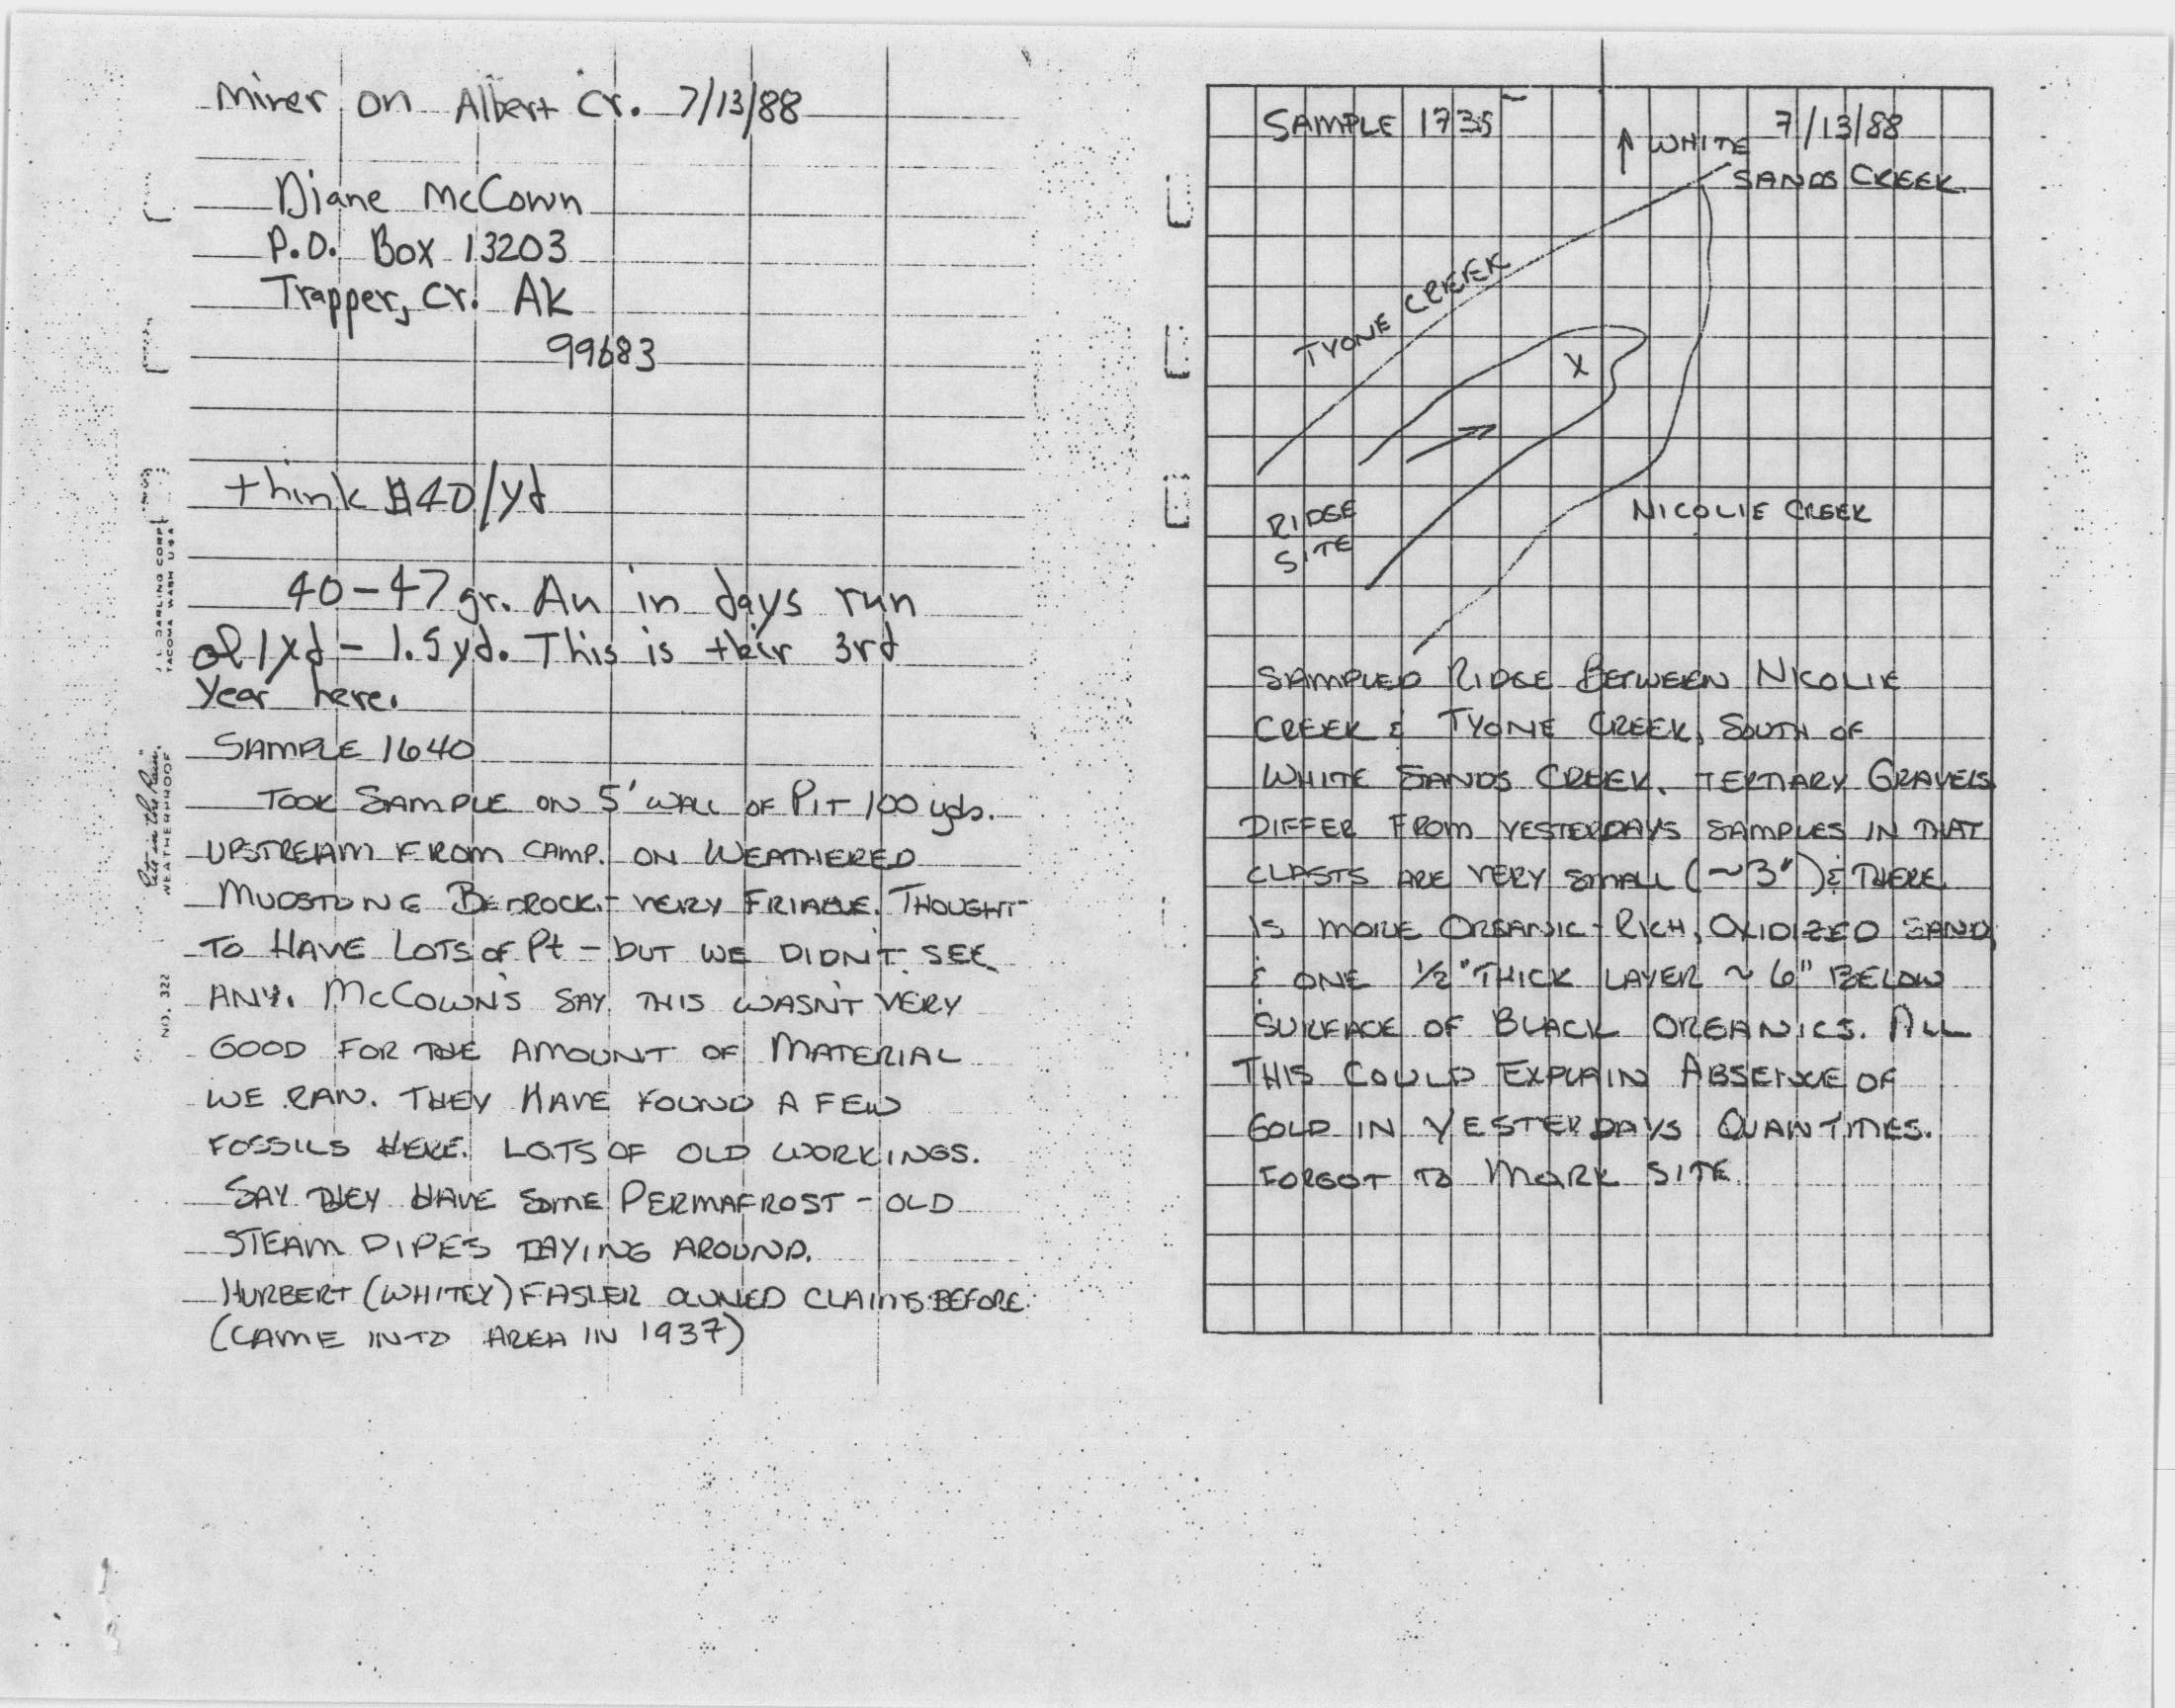 Miner on Albert Cr. 7/13/88
Diane McCown
P.O. Box 13203
Trapper, Cr. AK
99683
think $40/yd
40-47 gr. Au in days run
of 1yd - 1.5yd. This is their 3rd
Year here.
SAMPLE 1640
TOOK SAMPLE ON 5' WALL OF PIT 100 yds.
UPSTREAM FROM CAMP. ON WEATHERED
MUDSTONE BEDROCK - VERY FRIABLE. THOUGHT
TO HAVE LOTS OF Pt - but WE DIDN'T SEE
ANY. McCOWN'S SAY THIS WASN'T VERY
GOOD FOR THE AMOUNT OF MATERIAL
WE RAN. THEY HAVE FOUND A FEW
FOSSILS HERE. LOTS OF OLD WORKINGS.
SAY THEY HAVE SOME PERMAFROST - OLD
STEAM PIPES LAYING AROUND.
HURBERT (WHITEY) FASLER OWNED CLAIMS BEFORE.
(CAME INTO AREA IN 1937)
J. L. DARLING CORP.
TACOMA WASH USA
"Rite in the Rain"
WEATHERPROOF
NO. 322
SAMPLE 1735
7/13/88
↑ WHITE
SANDS CREEK
TYONE CREEK
X
RIDGE
SITE
NICOLIE CREEK
SAMPLED RIDGE BETWEEN NICOLIE
CREEK & TYONE CREEK, SOUTH OF
WHITE SANDS CREEK. TERTIARY GRAVELS
DIFFER FROM YESTERDAYS SAMPLES IN THAT
CLASTS ARE VERY SMALL (~3") & THERE
IS MORE ORGANIC-RICH, OXIDIZED SAND,
& ONE 1/2" THICK LAYER ~ 6" BELOW
SURFACE OF BLACK ORGANICS. ALL
THIS COULD EXPLAIN ABSENCE OF
GOLD IN YESTERDAYS QUANTITIES.
FORGOT TO MARK SITE.